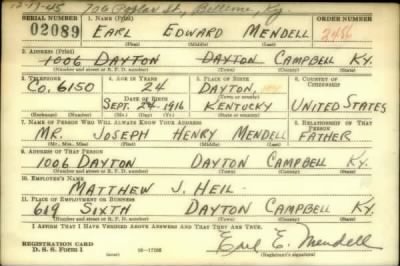 12-17-45 706 Poplar St., Bellevue, Ky.
SERIAL NUMBER 1. NAME (Print) ORDER NUMBER
02089 EARL EDWARD MENDELL 2486
(First) (Middle) (Last)
2. ADDRESS (Print)
1006 DAYTON DAYTON CAMPBELL KY.
(Number and street or R. F. D. number) (Town) (County) (State)
3. TELEPHONE 4. AGE IN YEARS 5. PLACE OF BIRTH 6. COUNTRY OF CITIZENSHIP
CO. 6150 24 DAYTON,
DATE OF BIRTH (Town or county)
SEPT. 24 1916 KENTUCKY UNITED STATES
(Exchange) (Number) (Mo.) (Day) (Yr.) (State or country)
7. NAME OF PERSON WHO WILL ALWAYS KNOW YOUR ADDRESS 8. RELATIONSHIP OF THAT PERSON
MR. JOSEPH HENRY MENDELL FATHER
(Mr., Mrs., Miss) (First) (Middle) (Last)
9. ADDRESS OF THAT PERSON
1006 DAYTON DAYTON CAMPBELL KY.
(Number and street or R. F. D. number) (Town) (County) (State)
10. EMPLOYER'S NAME
MATTHEW J. HEIL
11. PLACE OF EMPLOYMENT OR BUSINESS
619 SIXTH DAYTON CAMPBELL KY.
(Number and street or R. F. D. number) (Town) (County) (State)
I AFFIRM THAT I HAVE VERIFIED ABOVE ANSWERS AND THAT THEY ARE TRUE.
REGISTRATION CARD
D. S. S. FORM 1 16-17105 Earl E. Mendell
(Registrant's signature)